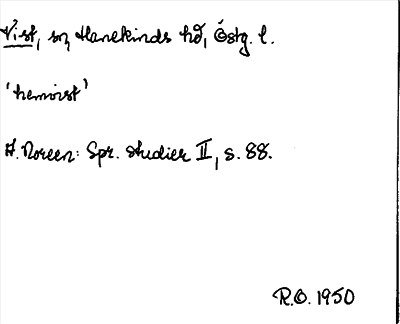 Vist, sn, Hanekinds hd, Östg. l.
'hemvist'
A. Noreen: Spr. studier II, s. 88.
R.O. 1950